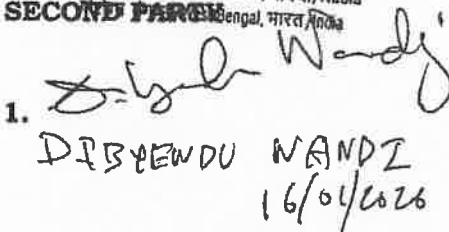 SECOND PARTY
Bengal, भारत, India
1.
DIBYENDU NANDI
16/01/2026